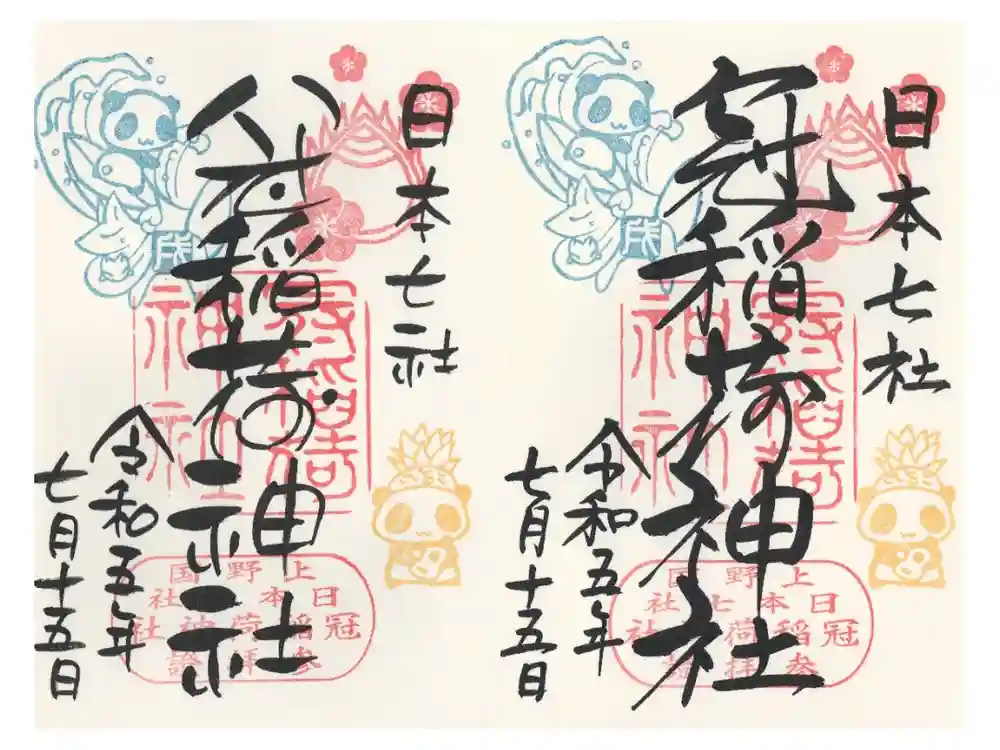 日本七社
冠稲荷神社
令和五年
七月十五日
上野国
日本七社
冠稲荷神社
参拝證
日本七社
冠稲荷神社
令和五年
七月十五日
上野国
日本七社
冠稲荷神社
参拝證